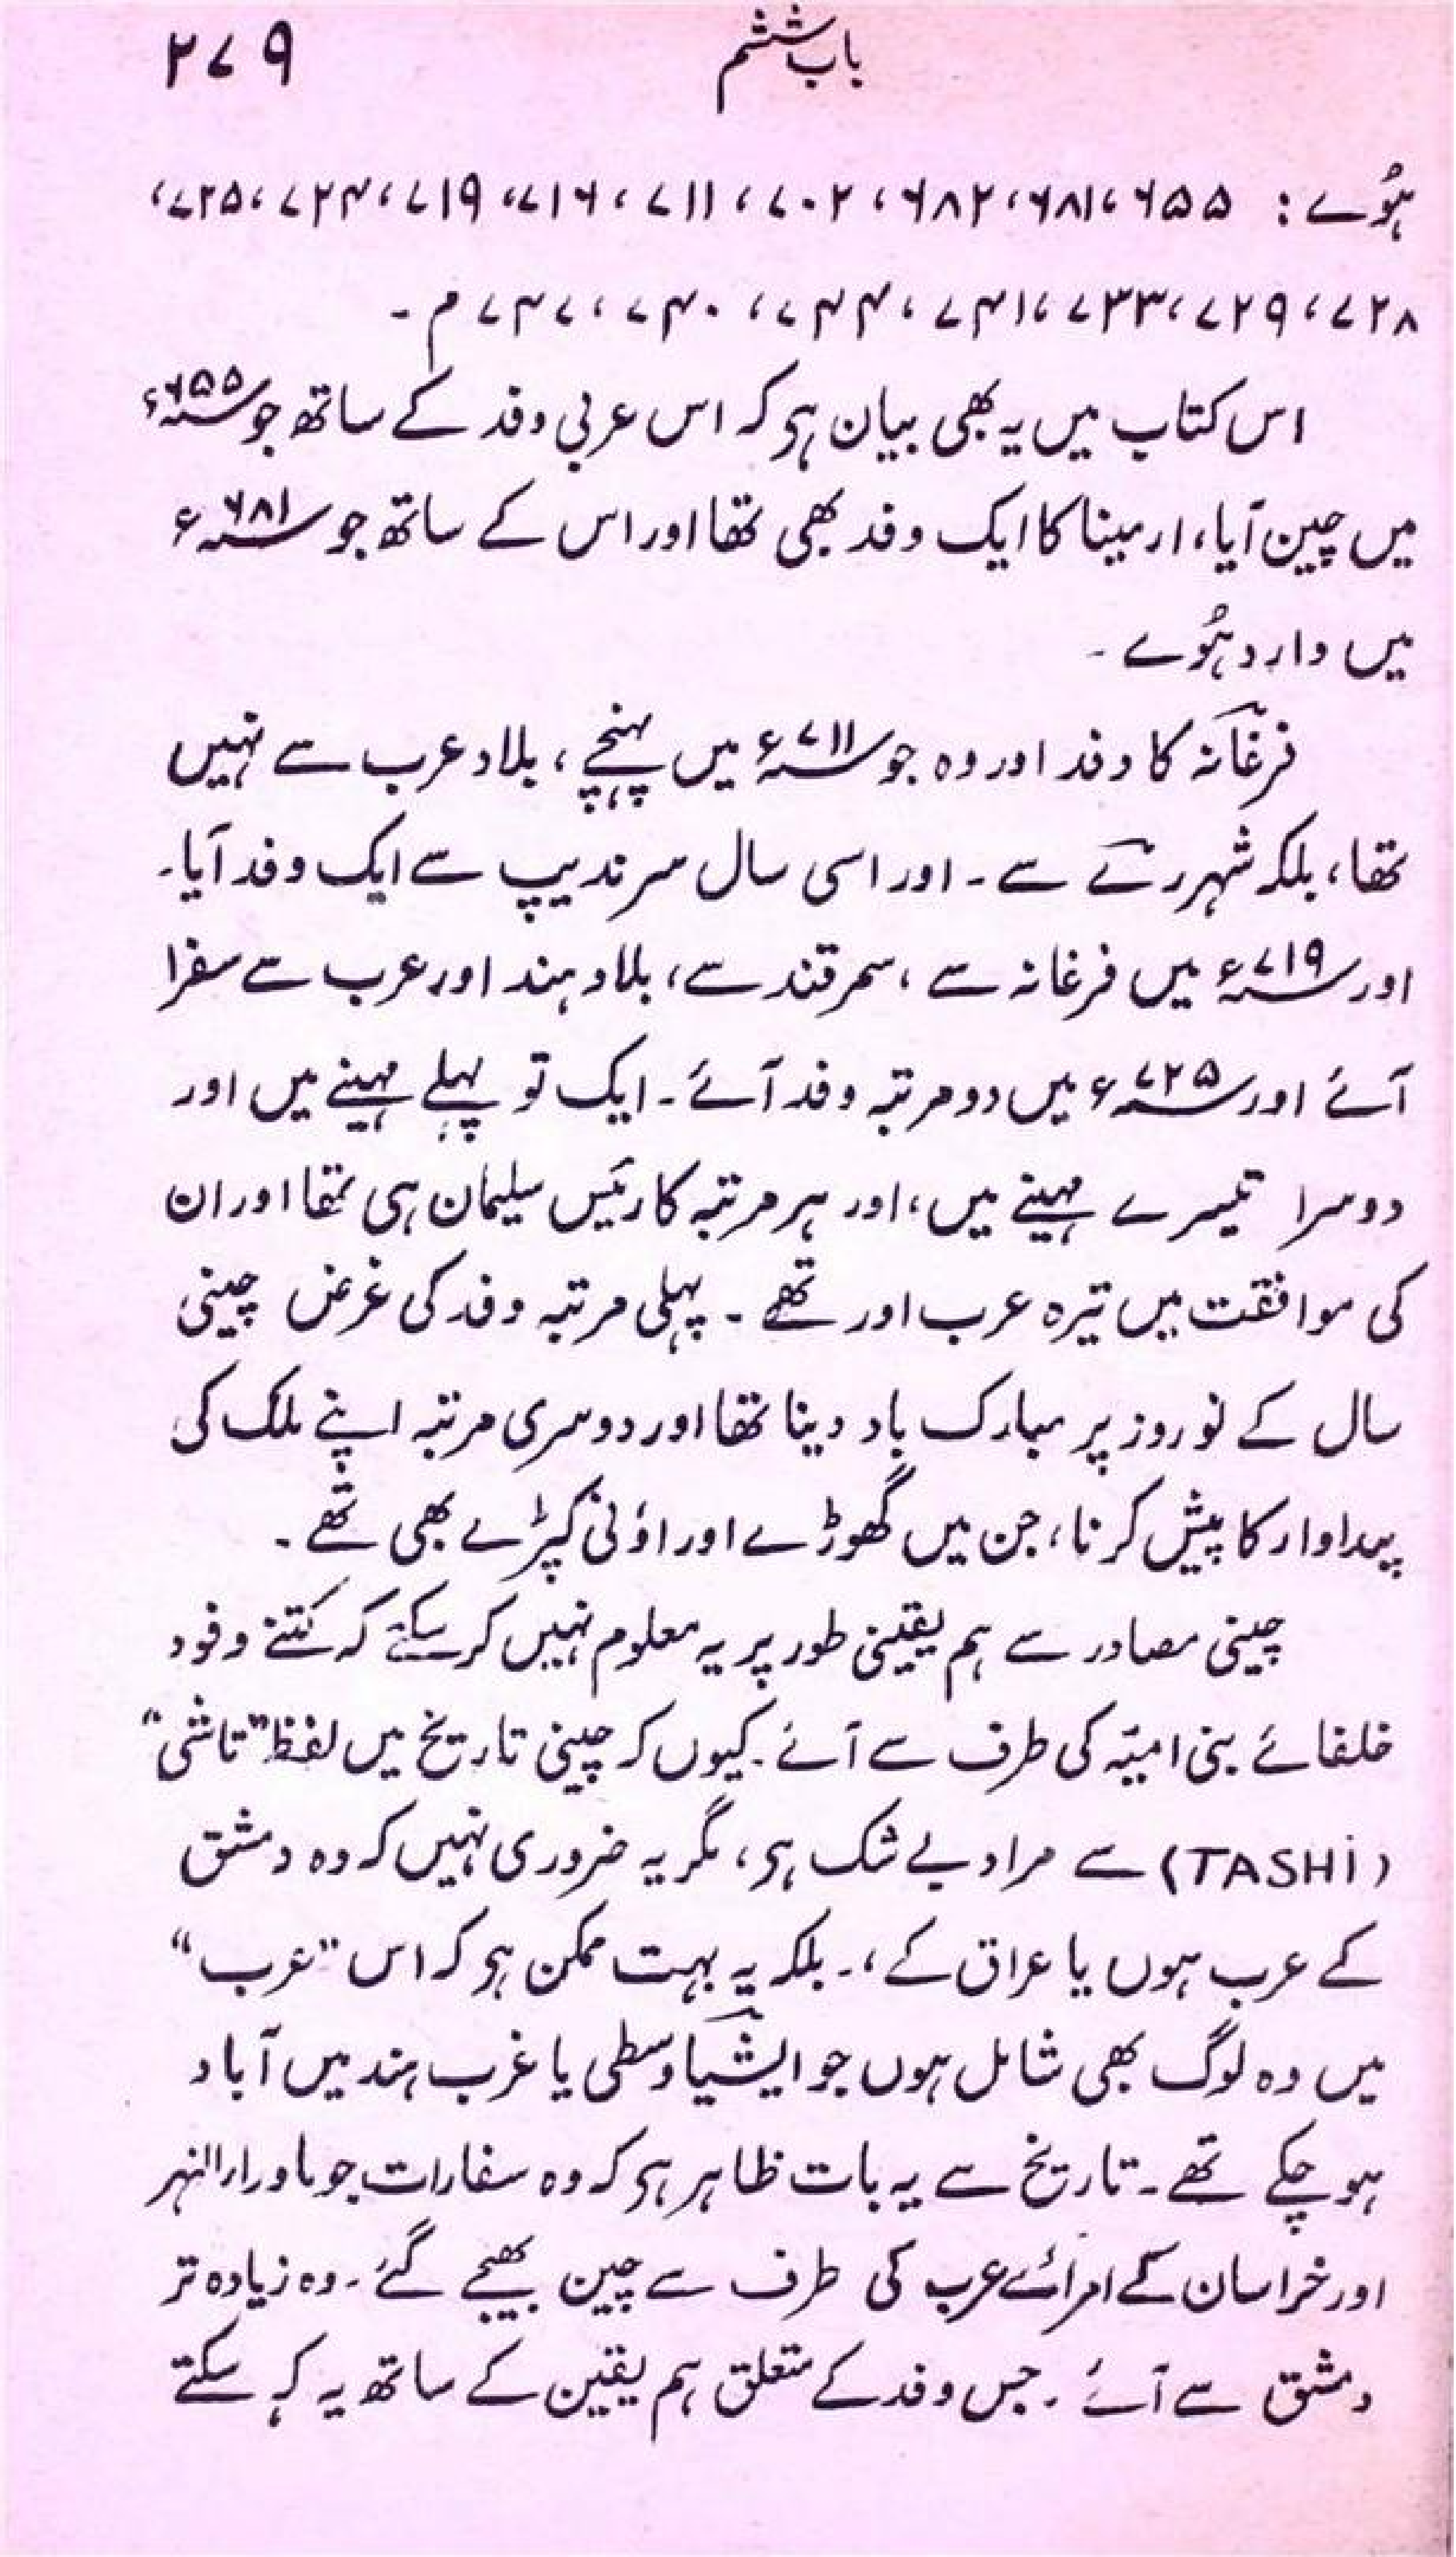 باب ششم ۲۷۹
ہوئے: ۶۵۵، ۶۸۱، ۶۸۲، ۷۰۲، ۷۱۱، ۷۱۶، ۷۱۹، ۷۲۴، ۷۲۵،
۷۲۸، ۷۲۹، ۷۳۳، ۷۴۱، ۷۴۴، ۷۴۰، ۷۴۷ م ۔
اس کتاب میں یہ بھی بیان ہی کہ اس عربی وفد کے ساتھ جو سنہ ۶۵۵ء
میں چین آیا، ارمینا کا ایک وفد بھی تھا اور اس کے ساتھ جو سنہ ۶۸۱ء
میں وارد ہوئے ۔
فرغانہ کا وفد اور وہ جو سنہ ۷۱۱ء میں پہنچے، بلاد عرب سے نہیں
تھا، بلکہ شہر رے سے ۔ اور اسی سال سرندیپ سے ایک وفد آیا۔
اور سنہ ۷۱۹ء میں فرغانہ سے، سمرقند سے، بلاد ہند اور عرب سے سفرا
آئے اور سنہ ۷۲۵ء میں دو مرتبہ وفد آئے ۔ ایک تو پہلے مہینے میں اور
دوسرا تیسرے مہینے میں، اور ہر مرتبہ کا رئیس سلیمان ہی تھا اور ان
کی موافقت میں تیرہ عرب اور تھے ۔ پہلی مرتبہ وفد کی غرض چینی
سال کے نوروز پر مبارک باد دینا تھا اور دوسری مرتبہ اپنے ملک کی
پیداوار کا پیش کرنا، جن میں گھوڑے اور اونی کپڑے بھی تھے ۔
چینی مصادر سے ہم یقینی طور پر یہ معلوم نہیں کر سکتے کہ کتنے وفود
خلفائے بنی امیّہ کی طرف سے آئے ۔ کیوں کہ چینی تاریخ میں لفظ "تاشی"
(TASHi) سے مراد بے شک ہی، مگر یہ ضروری نہیں کہ وہ دمشق
کے عرب ہوں یا عراق کے، ۔ بلکہ یہ بہت ممکن ہی کہ اس "عرب"
میں وہ لوگ بھی شامل ہوں جو ایشیا وسطی یا غرب ہند میں آباد
ہوچکے تھے ۔ تاریخ سے یہ بات ظاہر ہی کہ وہ سفارات جو ماوراءالنہر
اور خراسان کے امرائے عرب کی طرف سے چین بھیجے گئے ۔ وہ زیادہ تر
دمشق سے آئے ۔ جس وفد کے متعلق ہم یقین کے ساتھ یہ کہ سکتے